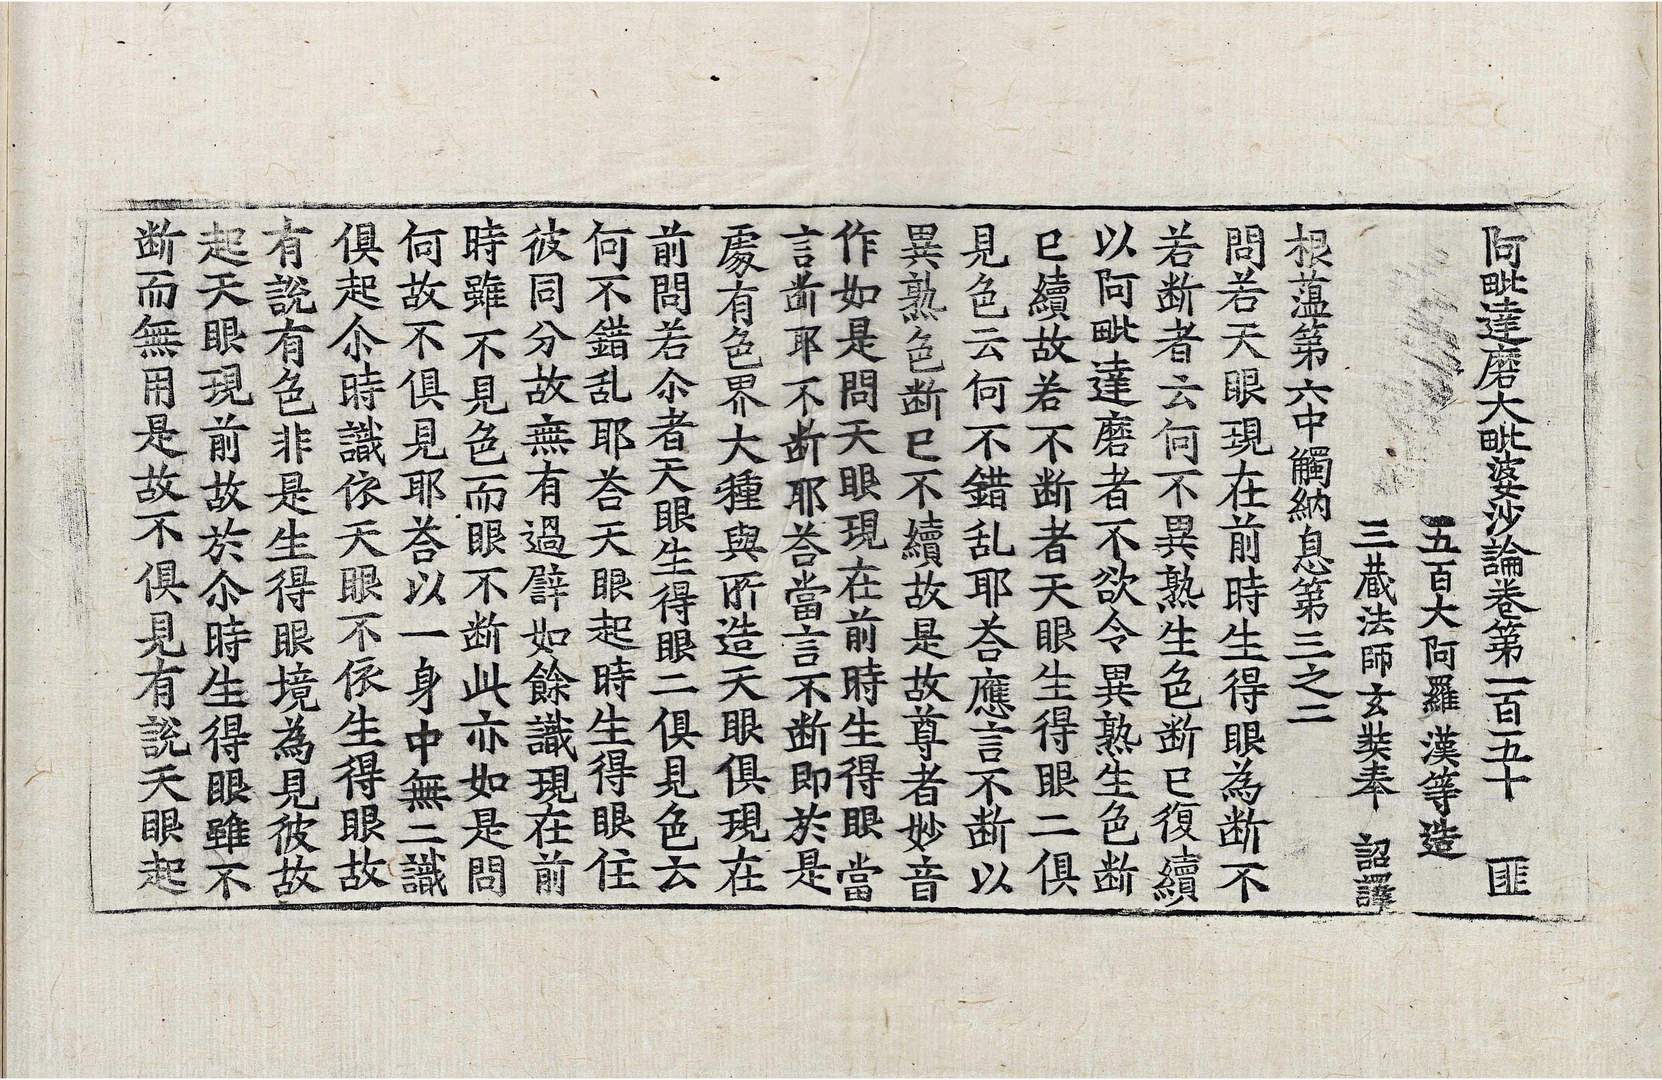 阿毗達磨大毗婆沙論卷第一百五十 匪
五百大阿羅漢等造
三藏法師玄奘奉 詔譯
根蘊第六中觸納息第三之二
問若天眼現在前時生得眼為断不
若断者云何不異熟生色断已復續
以阿毗達磨者不欲令異熟生色断
已續故若不断者天眼生得眼二俱
見色云何不錯乱耶荅應言不断以
異熟色断已不續故是故尊者妙音
作如是問天眼現在前時生得眼當
言断耶不断耶荅當言不断即於是
處有色界大種與所造天眼俱現在
前問若尒者天眼生得眼二俱見色云
何不錯乱耶荅天眼起時生得眼住
彼同分故無有過譬如餘識現在前
時雖不見色而眼不断此亦如是問
何故不俱見耶荅以一身中無二識
俱起尒時識依天眼不依生得眼故
有說有色非是生得眼境為見彼故
起天眼現前故於尒時生得眼雖不
断而無用是故不俱見有說天眼起